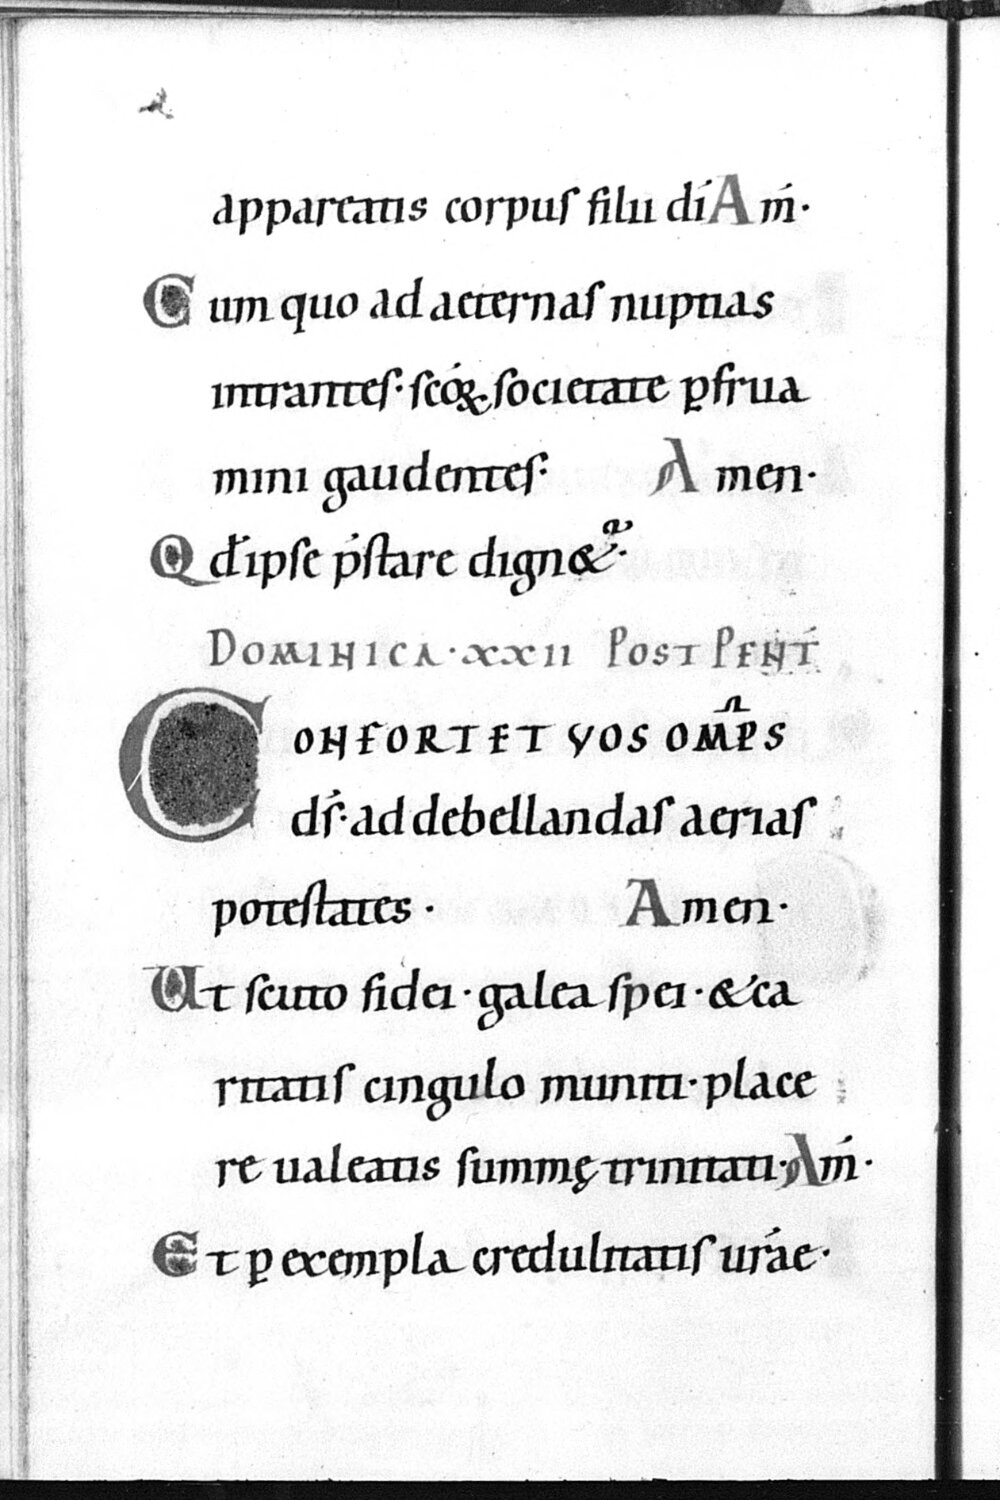 appareatis corpus filii dī Am̄·
Cum quo ad aeternas nuptias
intrantes· scōꝝ & societate ꝑfrua
mini gaudentes· Amen·
Qđ ipse p̄stare dign&ur·
DOMINICA·XXII POST PENT̄
CONFORTET VOS OMP̄S
ds̄· ad debellandas aerias
potestates · Amen·
Ut scuto fidei · galea spei · & ca
ritatis cingulo muniti· place
re ualeatis summę trinitati· Am̄·
Et ꝑ exempla credulitatis ur̄ae·